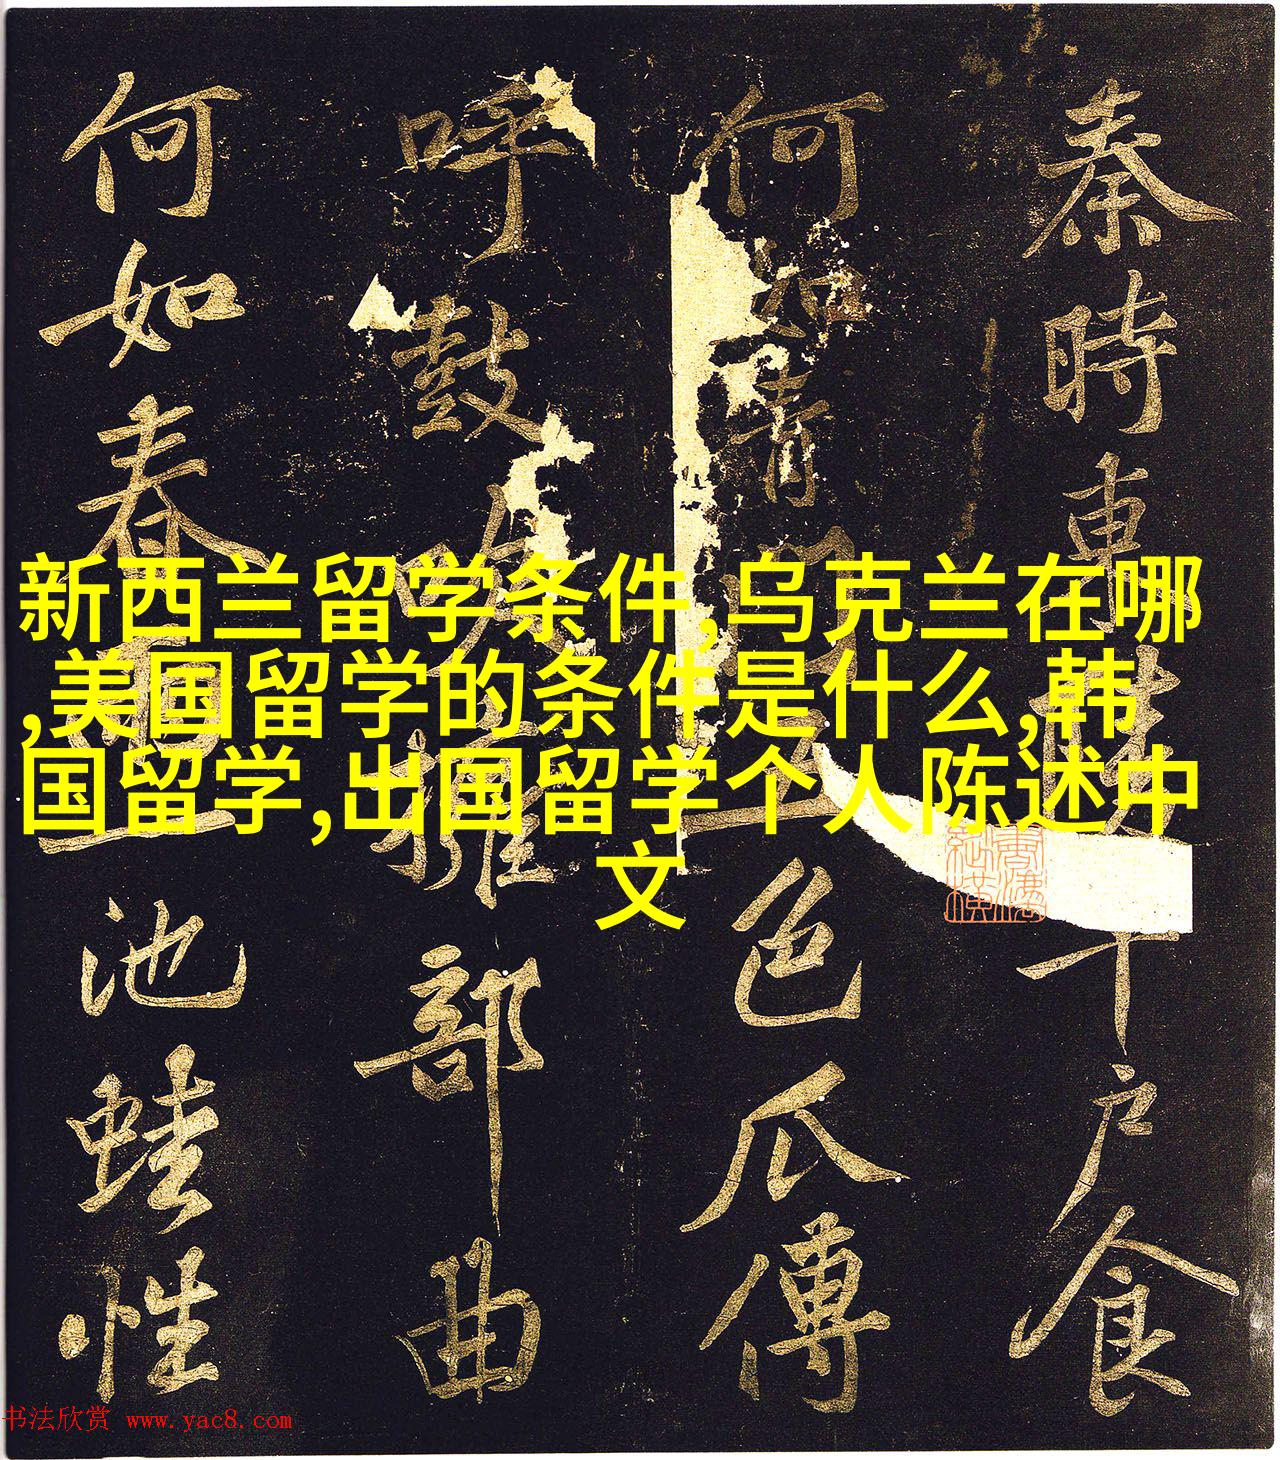 新西兰留学条件,乌克兰在哪
,美国留学的条件是什么,韩
国留学,出国留学个人陈述中
文
秦時東陵千戶食
何如青門五色瓜傳
呼鼓吹擁部曲
何如春雨一池蛙性
书法欣赏 www.yac8.com